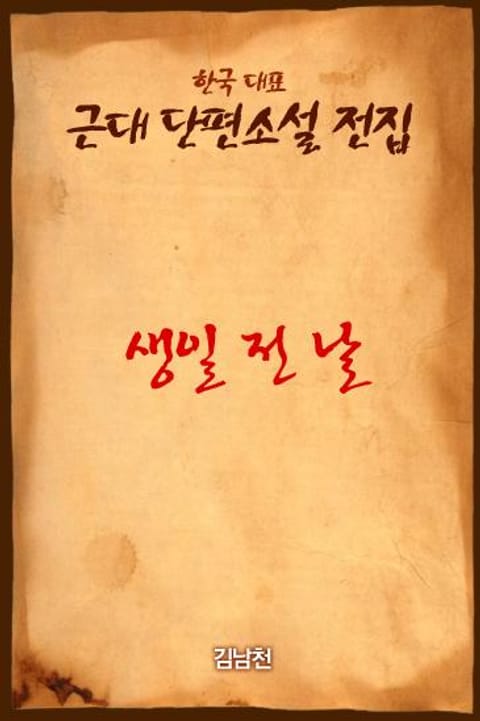 한국 대표
근대 단편소설 전집
생일 전 날
김남천